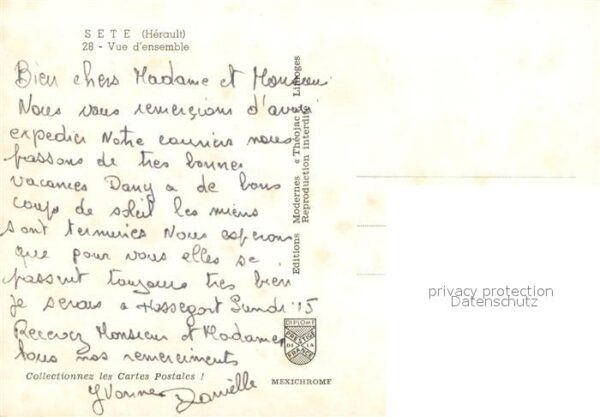 SETE (Hérault)
28 - Vue d'ensemble
Bien chers Madame et Monsieur
Nous vous remerçions d'avoir
expedier Notre courrier nous
passons de tres bonnes
vacances Dany a de bons
coups de soleil les miens
sont termines Nous esperons
que pour vous elles se
passent toujours tres bien
je serais a Hossegort Lundi 15
Recevez Monsieur et Madame
tous nos remerciments
Yvonne Danielle
Collectionnez les Cartes Postales !
Editions Modernes « Théojac » Limoges
Reproduction interdite
DIPLOME
PRESTIGE
DE LA
FRANCE
MEXICHROME
privacy protection
Datenschutz